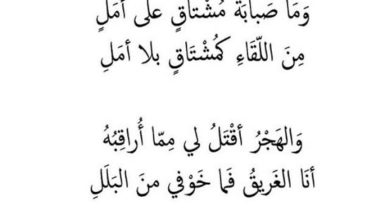 وَمَا صَبَابَةُ مُشْتَاقٍ عَلى أمَلٍ
مِنَ اللّقَاءِ كمُشْتَاقٍ بلا أمَلِ
وَالهَجْرُ أقْتَلُ لي مِمّا أُراقِبُهُ
أنَا الغَريقُ فَما خَوْفي منَ البَلَلِ